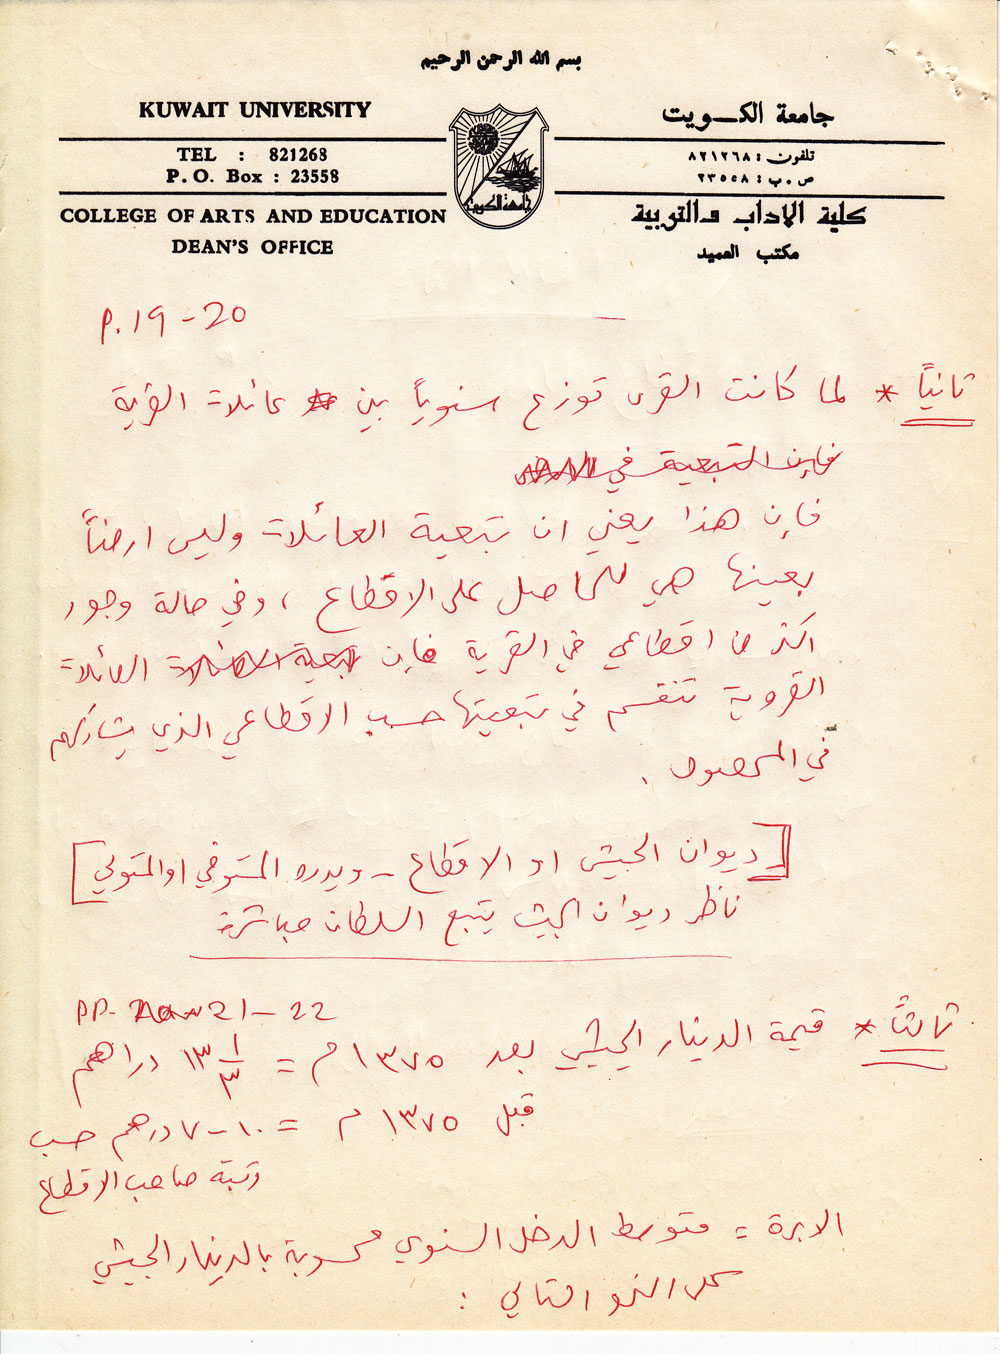 بسم الله الرحمن الرحيم
KUWAIT UNIVERSITY
TEL : 821268
P. O. Box : 23558
COLLEGE OF ARTS AND EDUCATION
DEAN'S OFFICE
جامعة الكويت
تلفون : ٨٢١٢٦٨
ص . ب : ٢٣٥٥٨
كلية الآداب والتربية
مكتب العميد
جامعة الكويت
P. 19 - 20
ثانياً * لما كانت القرى توزع سنوياً بين عائلات القرية
فإن التبعية في
فإن هذا يعني ان تبعية العائلات وليس ارضاً
بعينها هي للحاصل على الاقطاع ، وفي حالة وجود
اكثر من اقطاعي في القرية فإن تبعية العائلات العائلات
القروية تنقسم في تبعيتها حسب الاقطاعي الذي يشاركهم
في المحصول .
[ ديوان الجيش او الاقطاع - ويديره المستوفي او المتولي ]
ناظر ديوان الجيش يتبع السلطان مباشرة
PP. 21 - 22
ثالثاً * قيمة الدينار الجيشي بعد ١٣٧٥ م = ١٣ ١/٣ دراهم
قبل ١٣٧٥ م = ١٠ - ٧ درهم حسب
رتبة صاحب الاقطاع
العبرة = متوسط الدخل السنوي محسوبة بالدينار الجيشي
على النحو التالي :